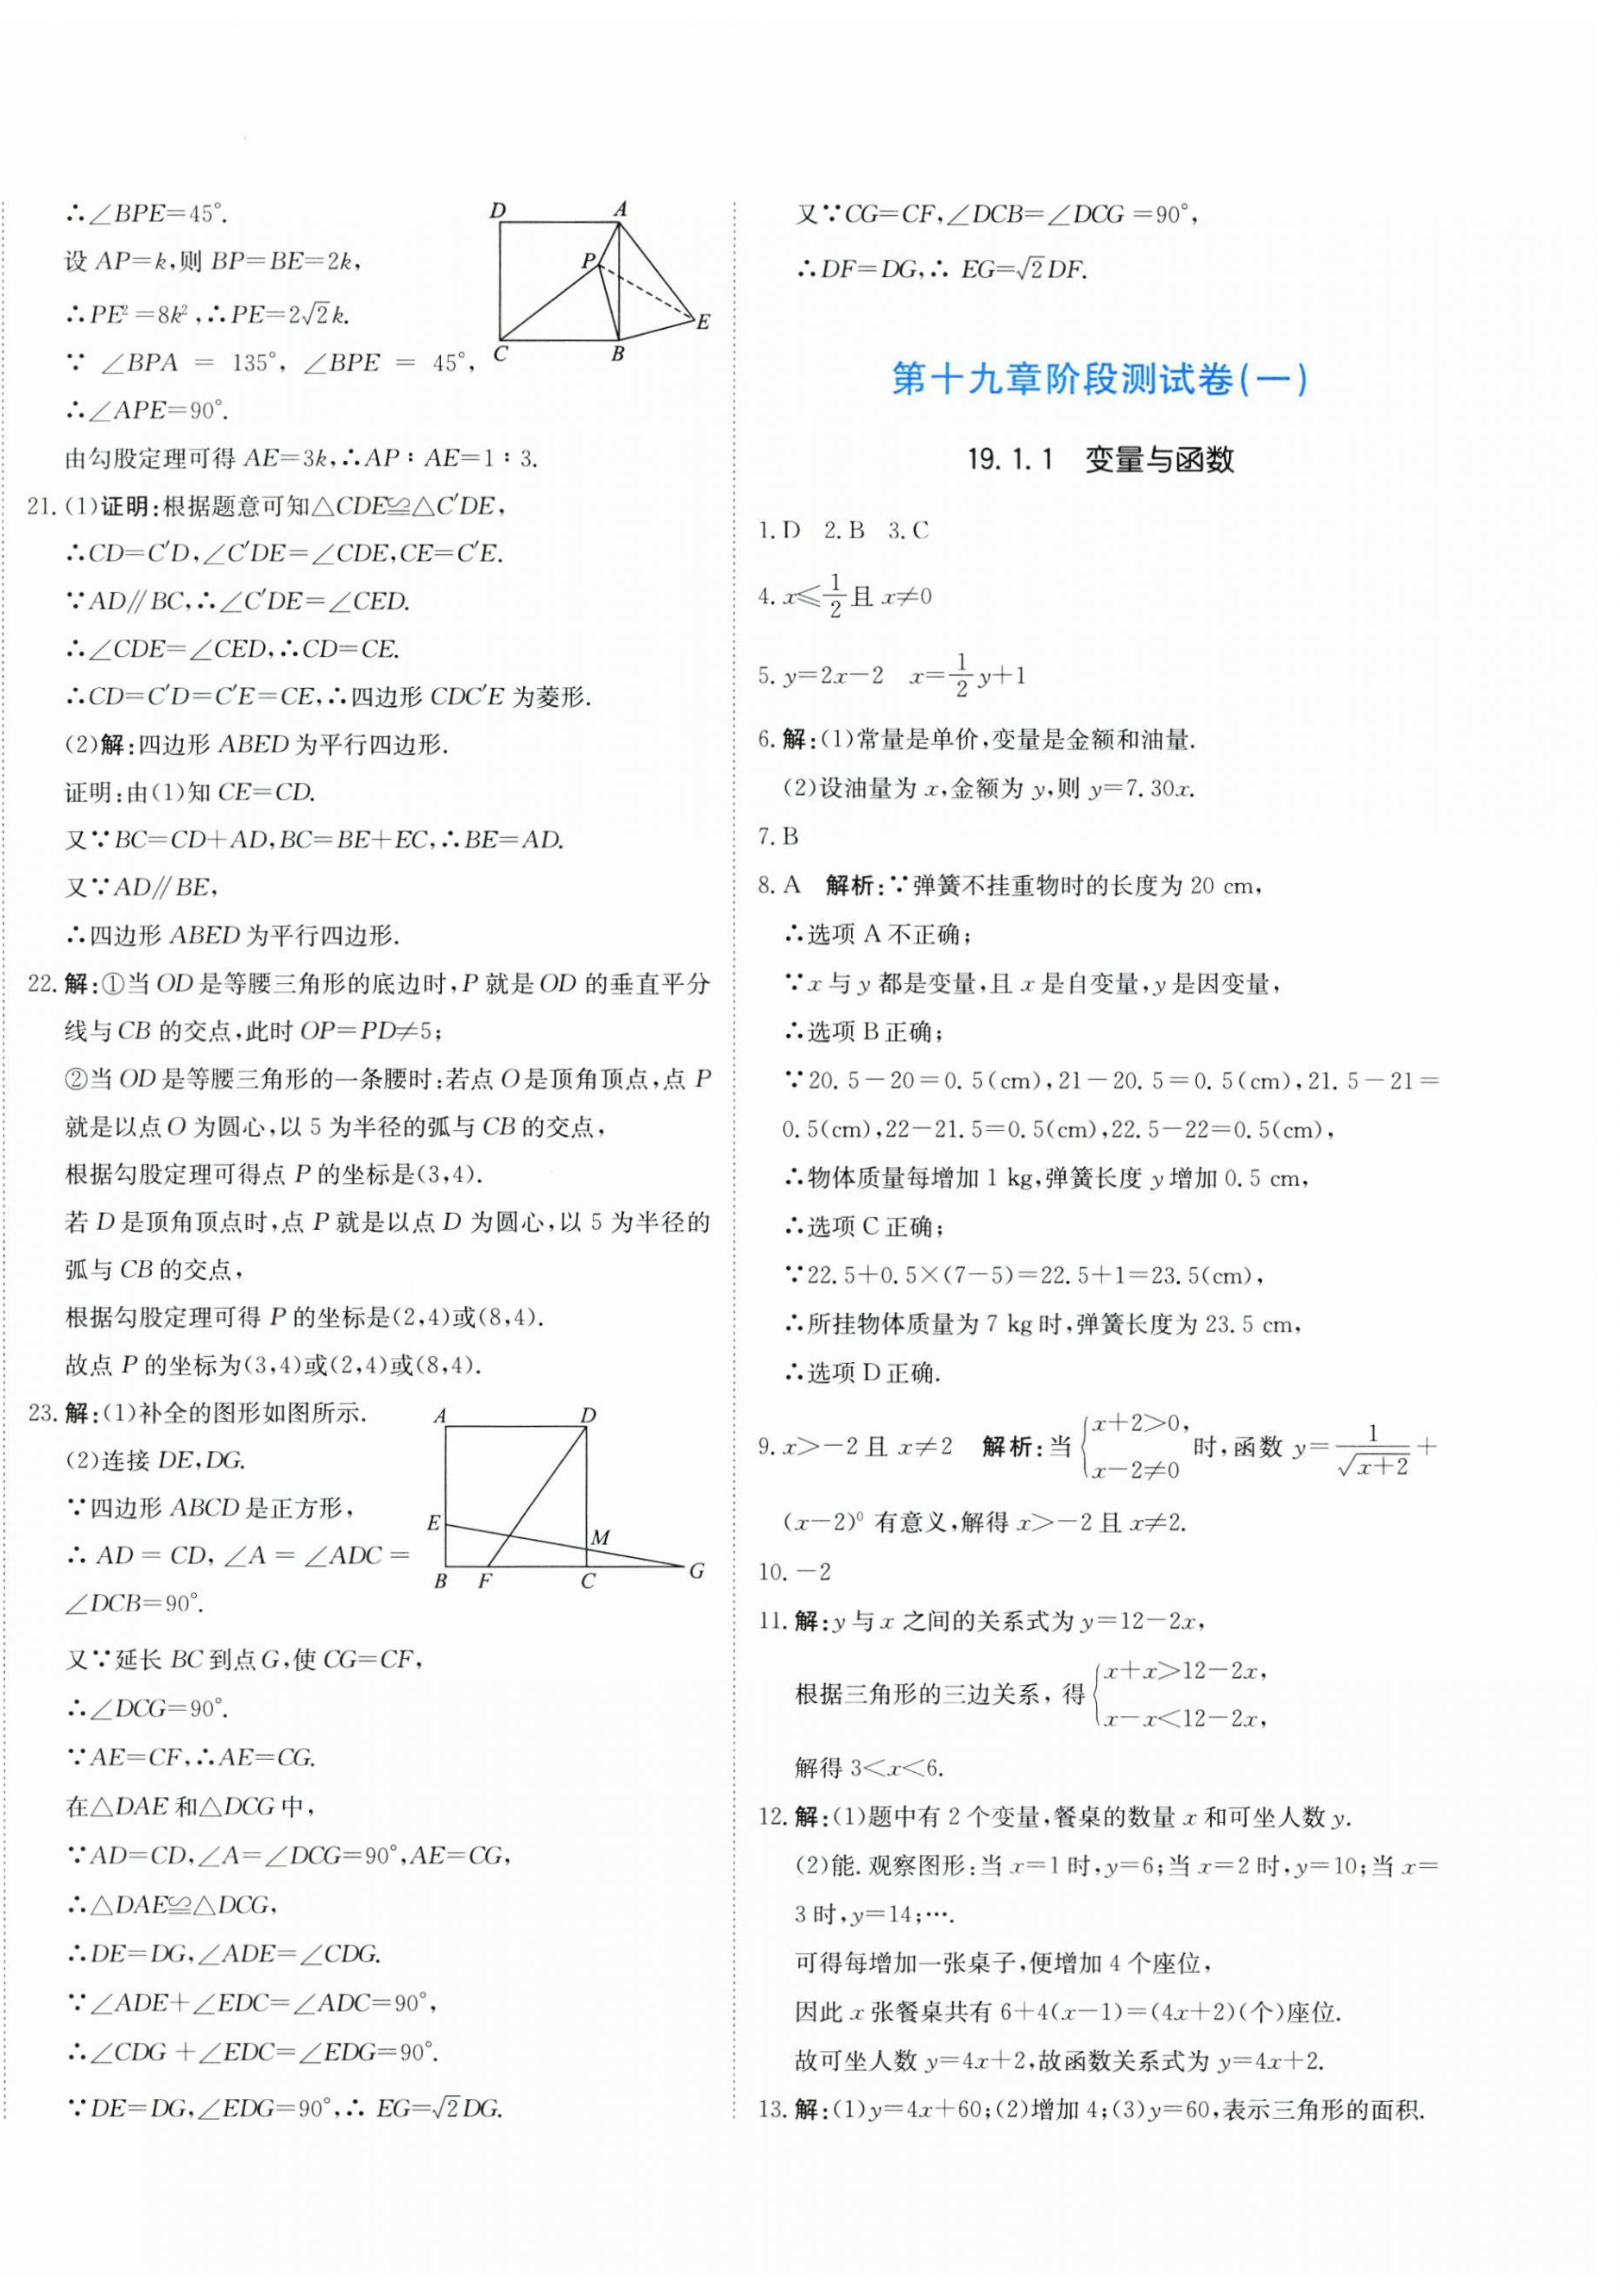 ∴∠BPE=45°.
设 AP=k,则 BP=BE=2k,
∴PE²=8k²,∴PE=2√2k.
∵ ∠BPA = 135°, ∠BPE = 45°,
∴∠APE=90°.
由勾股定理可得 AE=3k,∴AP∶AE=1∶3.
D
A
P
E
C
B
21.(1)证明:根据题意可知△CDE≌△C′DE,
∴CD=C′D,∠C′DE=∠CDE,CE=C′E.
∵AD∥BC,∴∠C′DE=∠CED.
∴∠CDE=∠CED,∴CD=CE.
∴CD=C′D=C′E=CE,∴四边形 CDC′E 为菱形.
(2)解:四边形 ABED 为平行四边形.
证明:由(1)知 CE=CD.
又∵BC=CD+AD,BC=BE+EC,∴BE=AD.
又∵AD∥BE,
∴四边形 ABED 为平行四边形.
22.解:①当 OD 是等腰三角形的底边时,P 就是 OD 的垂直平分
线与 CB 的交点,此时 OP=PD≠5;
②当 OD 是等腰三角形的一条腰时:若点 O 是顶角顶点,点 P
就是以点 O 为圆心,以 5 为半径的弧与 CB 的交点,
根据勾股定理可得点 P 的坐标是(3,4).
若 D 是顶角顶点时,点 P 就是以点 D 为圆心,以 5 为半径的
弧与 CB 的交点,
根据勾股定理可得 P 的坐标是(2,4)或(8,4).
故点 P 的坐标为(3,4)或(2,4)或(8,4).
23.解:(1)补全的图形如图所示.
(2)连接 DE,DG.
∵四边形 ABCD 是正方形,
∴ AD = CD, ∠A = ∠ADC =
∠DCB=90°.
A
D
E
M
B
F
C
G
又∵延长 BC 到点 G,使 CG=CF,
∴∠DCG=90°.
∵AE=CF,∴AE=CG.
在△DAE 和△DCG 中,
∵AD=CD,∠A=∠DCG=90°,AE=CG,
∴△DAE≌△DCG,
∴DE=DG,∠ADE=∠CDG.
∵∠ADE+∠EDC=∠ADC=90°,
∴∠CDG+∠EDC=∠EDG=90°.
∵DE=DG,∠EDG=90°,∴ EG=√2DG.
又∵CG=CF,∠DCB=∠DCG=90°,
∴DF=DG,∴ EG=√2DF.
第十九章阶段测试卷(一)
19.1.1 变量与函数
1.D 2.B 3.C
4.x≤1/2且 x≠0
5.y=2x−2 x=1/2y+1
6.解:(1)常量是单价,变量是金额和油量.
(2)设油量为 x,金额为 y,则 y=7.30x.
7.B
8.A 解析:∵弹簧不挂重物时的长度为 20 cm,
∴选项 A 不正确;
∵x 与 y 都是变量,且 x 是自变量,y 是因变量,
∴选项 B 正确;
∵20.5−20=0.5(cm),21−20.5=0.5(cm),21.5−21=
0.5(cm),22−21.5=0.5(cm),22.5−22=0.5(cm),
∴物体质量每增加 1 kg,弹簧长度 y 增加 0.5 cm,
∴选项 C 正确;
∵22.5+0.5×(7−5)=22.5+1=23.5(cm),
∴所挂物体质量为 7 kg 时,弹簧长度为 23.5 cm,
∴选项 D 正确.
9.x>−2 且 x≠2 解析:当{x+2>0, x−2≠0 时,函数 y=1/√(x+2)+
(x−2)⁰ 有意义,解得 x>−2 且 x≠2.
10.−2
11.解:y 与 x 之间的关系式为 y=12−2x,
根据三角形的三边关系,得{x+x>12−2x, x−x<12−2x,
解得 3<x<6.
12.解:(1)题中有 2 个变量,餐桌的数量 x 和可坐人数 y.
(2)能.观察图形:当 x=1 时,y=6;当 x=2 时,y=10;当 x=
3 时,y=14;….
可得每增加一张桌子,便增加 4 个座位,
因此 x 张餐桌共有 6+4(x−1)=(4x+2)(个)座位.
故可坐人数 y=4x+2,故函数关系式为 y=4x+2.
13.解:(1)y=4x+60;(2)增加 4;(3)y=60,表示三角形的面积.